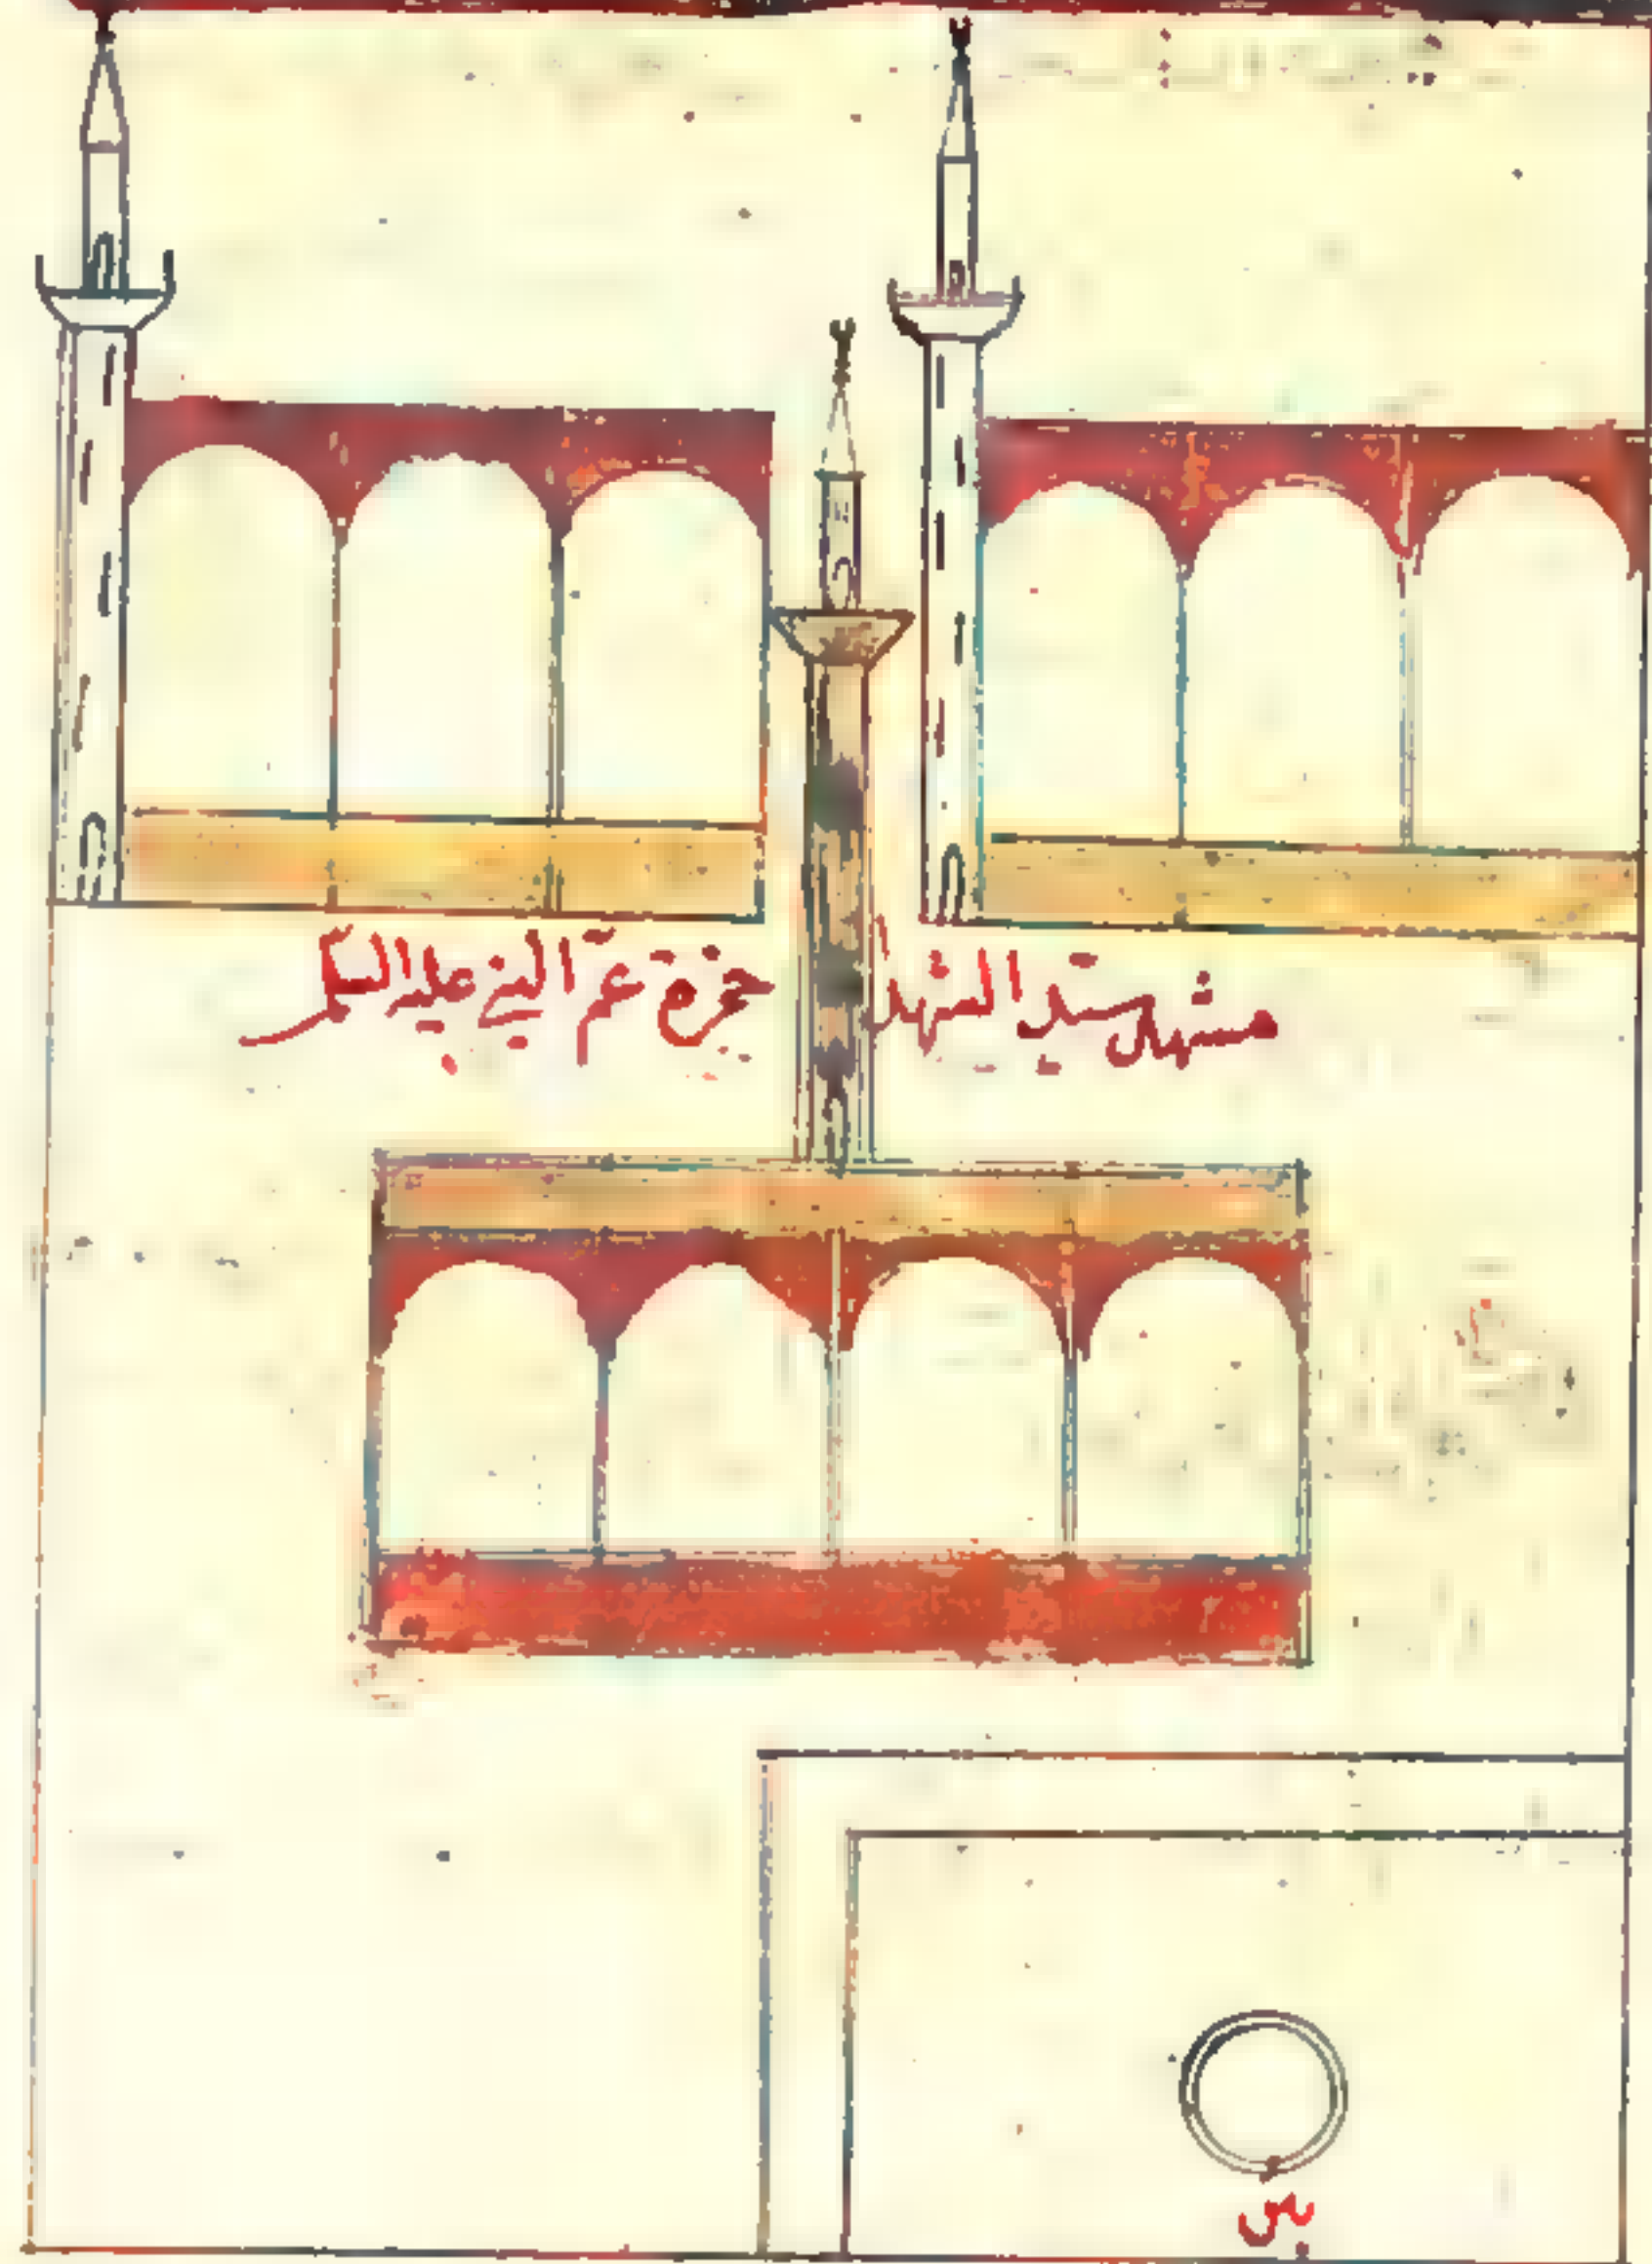 مشهد سيد الشهدا حمزة عم النبي عليه السلم